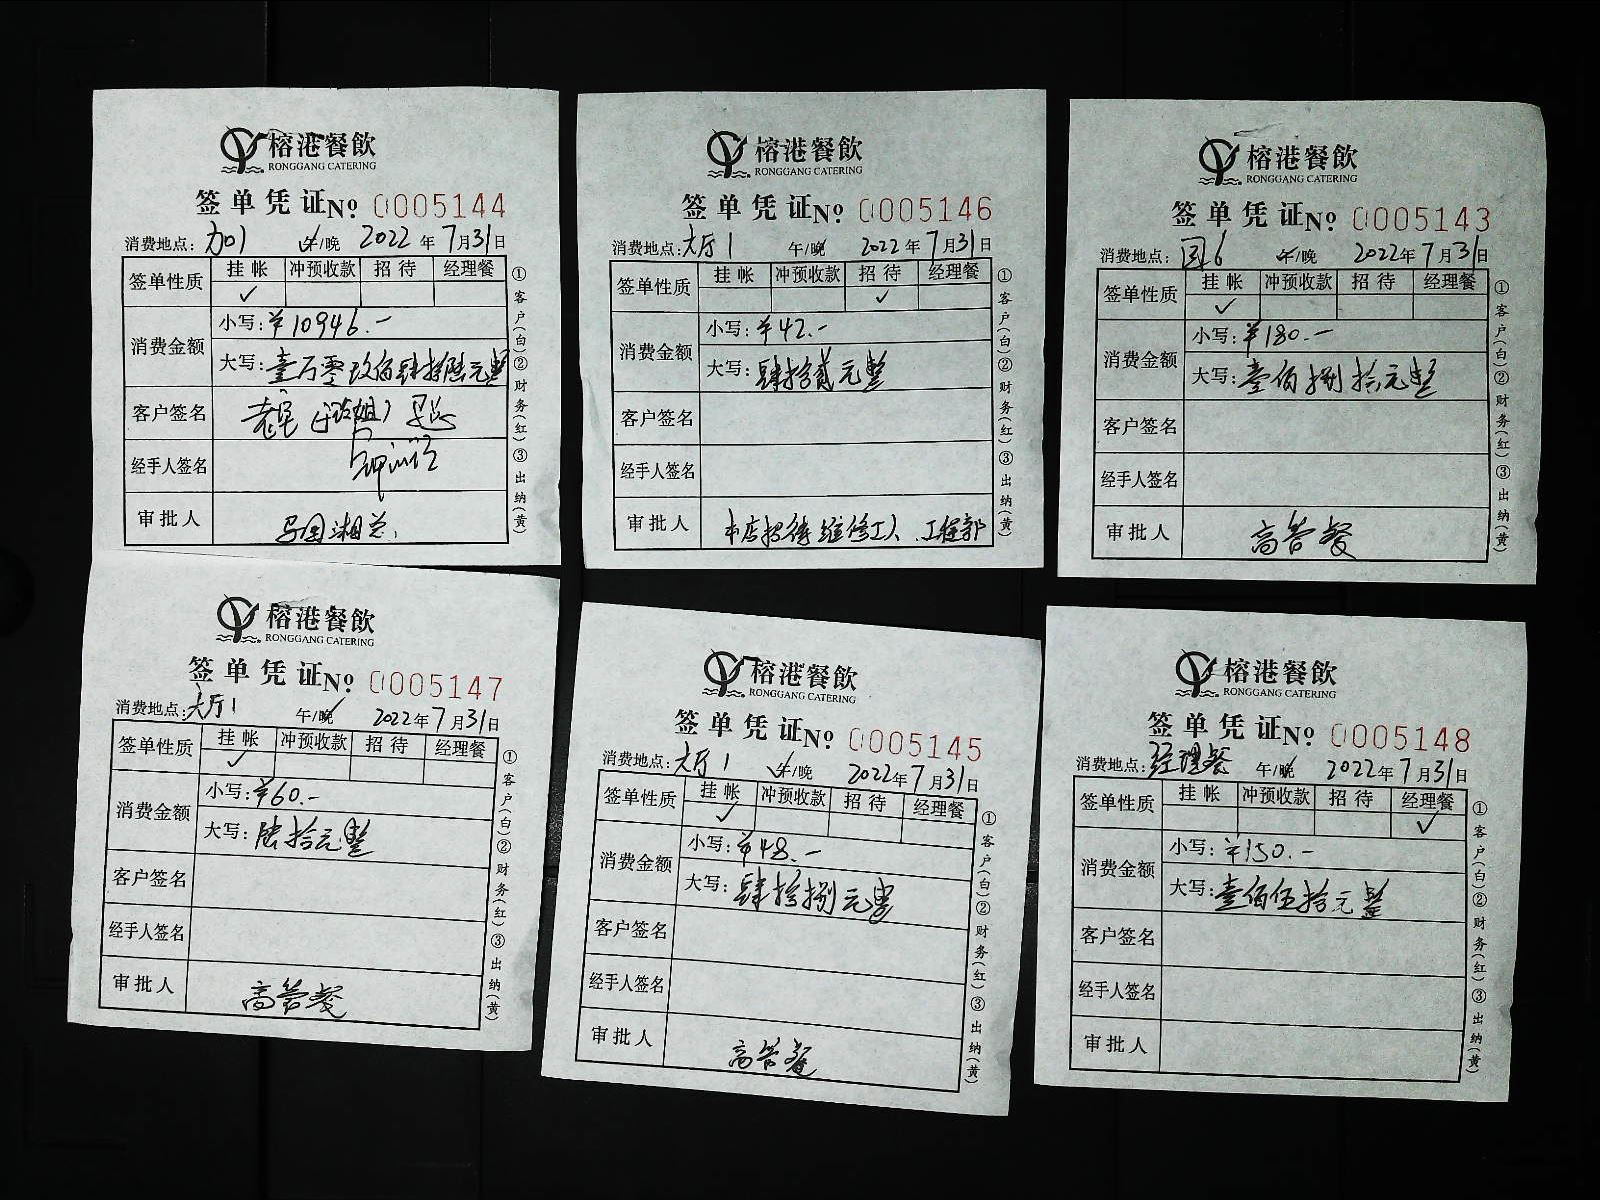 榕港餐飲
RONGGANG CATERING
签单凭证 No 0005144
消费地点: 加1 午/晚 2022年7月31日
签单性质 挂帐 冲预收款 招待 经理餐
✓
消费金额 小写:¥10946.-
大写: 壹万零玖佰肆拾陆元整
客户签名
经手人签名
审批人 马国湘总
①客户(白)②财务(红)③出纳(黄)
榕港餐飲
RONGGANG CATERING
签单凭证 No 0005146
消费地点: 大厅1 午/晚 2022年7月31日
签单性质 挂帐 冲预收款 招待 经理餐
✓
消费金额 小写:¥42.-
大写: 肆拾贰元整
客户签名
经手人签名
审批人 本店招待维修工人.工程部
①客户(白)②财务(红)③出纳(黄)
榕港餐飲
RONGGANG CATERING
签单凭证 No 0005143
消费地点: 国6 午/晚 2022年7月31日
签单性质 挂帐 冲预收款 招待 经理餐
✓
消费金额 小写:¥180.-
大写: 壹佰捌拾元整
客户签名
经手人签名
审批人 高管餐
①客户(白)②财务(红)③出纳(黄)
榕港餐飲
RONGGANG CATERING
签单凭证 No 0005147
消费地点: 大厅1 午/晚 2022年7月31日
签单性质 挂帐 冲预收款 招待 经理餐
✓
消费金额 小写:¥60.-
大写: 陆拾元整
客户签名
经手人签名
审批人 高管餐
①客户(白)②财务(红)③出纳(黄)
榕港餐飲
RONGGANG CATERING
签单凭证 No 0005145
消费地点: 大厅1 午/晚 2022年7月31日
签单性质 挂帐 冲预收款 招待 经理餐
✓
消费金额 小写:¥48.-
大写: 肆拾捌元整
客户签名
经手人签名
审批人 高管餐
①客户(白)②财务(红)③出纳(黄)
榕港餐飲
RONGGANG CATERING
签单凭证 No 0005148
消费地点: 经理餐 午/晚 2022年7月31日
签单性质 挂帐 冲预收款 招待 经理餐
✓
消费金额 小写:¥150.-
大写: 壹佰伍拾元整
客户签名
经手人签名
审批人
①客户(白)②财务(红)③出纳(黄)